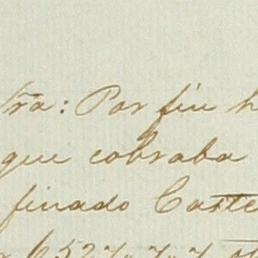 tra: Por fin h
que cobraba
finado Caste
6527.7.7